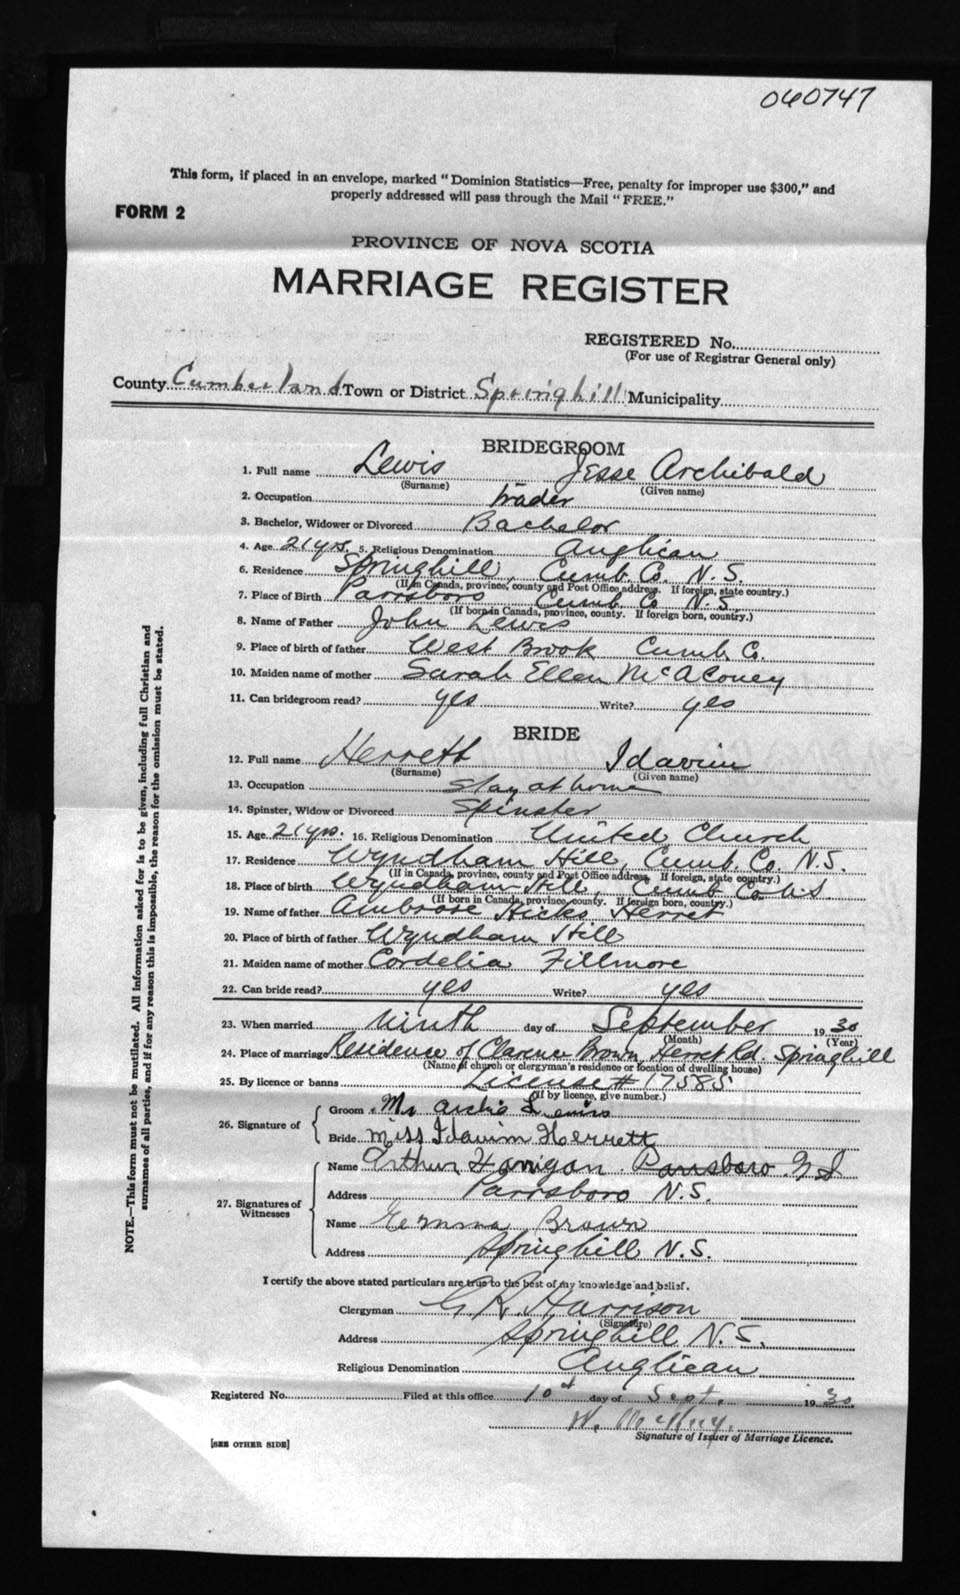 060747
This form, if placed in an envelope, marked "Dominion Statistics—Free, penalty for improper use $300," and
properly addressed will pass through the Mail "FREE."
FORM 2
PROVINCE OF NOVA SCOTIA
MARRIAGE REGISTER
REGISTERED No.
(For use of Registrar General only)
County Cumberland Town or District Springhill Municipality
BRIDEGROOM
1. Full name Lewis Jesse Archibald
(Surname) (Given name)
2. Occupation trader
3. Bachelor, Widower or Divorced Bachelor
4. Age 21 yrs. 5. Religious Denomination Anglican
6. Residence Springhill, Cumb. Co. N.S.
(If in Canada, province, county and Post Office address. If foreign, state country.)
7. Place of Birth Parrsboro Cumb. Co N.S.
(If born in Canada, province, county. If foreign born, country.)
8. Name of Father John Lewis
9. Place of birth of father West Brook Cumb. Co.
10. Maiden name of mother Sarah Ellen McAloney
11. Can bridegroom read? yes Write? yes
BRIDE
12. Full name Herrett Idavim
(Surname) (Given name)
13. Occupation stay at home
14. Spinster, Widow or Divorced Spinster
15. Age 21 yrs. 16. Religious Denomination United Church
17. Residence Wyndham Hill, Cumb. Co. N.S.
(If in Canada, province, county and Post Office address. If foreign, state country.)
18. Place of birth Wyndham Hill, Cumb Co. N.S
(If born in Canada, province, county. If foreign born, country.)
19. Name of father Ambrose Hicks Herret
20. Place of birth of father Wyndham Hill
21. Maiden name of mother Cordelia Fillmore
22. Can bride read? yes Write? yes
23. When married ninth day of September 19 30
(Month) (Year)
24. Place of marriage Residence of Clarence Brown, Herret Rd. Springhill
(Name of church or clergyman's residence or location of dwelling house)
25. By licence or banns License # 17585
(If by licence, give number.)
26. Signature of
Groom Mr Archie Lewis
Bride Miss Idavim Herrett
27. Signatures of Witnesses
Name Arthur Parrsboro N S
Address Parrsboro N.S.
Name Gemma Brown
Address Springhill N.S.
I certify the above stated particulars are true to the best of my knowledge and belief.
Clergyman G. R. Harrison
(Signature)
Address Springhill N.S.
Religious Denomination Anglican
Registered No. Filed at this office 10th day of Sept. 19 30
W.
Signature of Issuer of Marriage Licence.
[SEE OTHER SIDE]
NOTE.—This form must not be mutilated. All information asked for is to be given, including full Christian and
surnames of all parties, and if for any reason this is impossible, the reason for the omission must be stated.